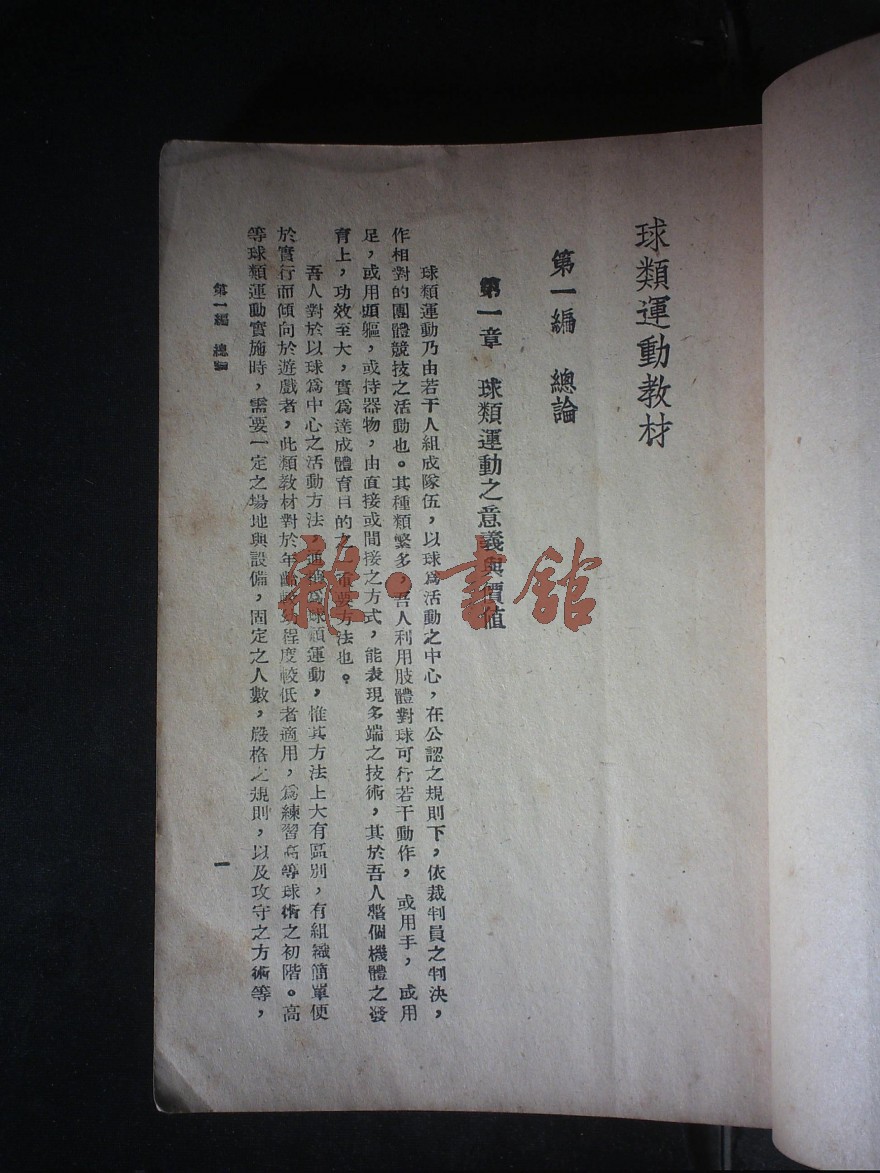 球類運動教材
第一編　總論
第一章　球類運動之意義與價值
球類運動乃由若干人組成隊伍，以球爲活動之中心，在公認之規則下，依裁判員之判決，
作相對的團體競技之活動也。其種類繁多，吾人利用肢體對球可行若干動作，或用手，或用
足，或用頭軀，或恃器物，由直接或間接之方式，能表現多端之技術，其於吾人整個機體之發
育上，功效至大，實爲達成體育目的之重要方法也。
吾人對於以球爲中心之活動方法，通稱爲球類運動，惟其方法上大有區別，有組織簡單便
於實行而傾向於遊戲者，此類教材對於年齡較幼程度較低者適用，爲練習高等球術之初階。高
等球類運動實施時，需要一定之場地與設備，固定之人數，嚴格之規則，以及攻守之方術等，
第一編　總論
一
雜·書館